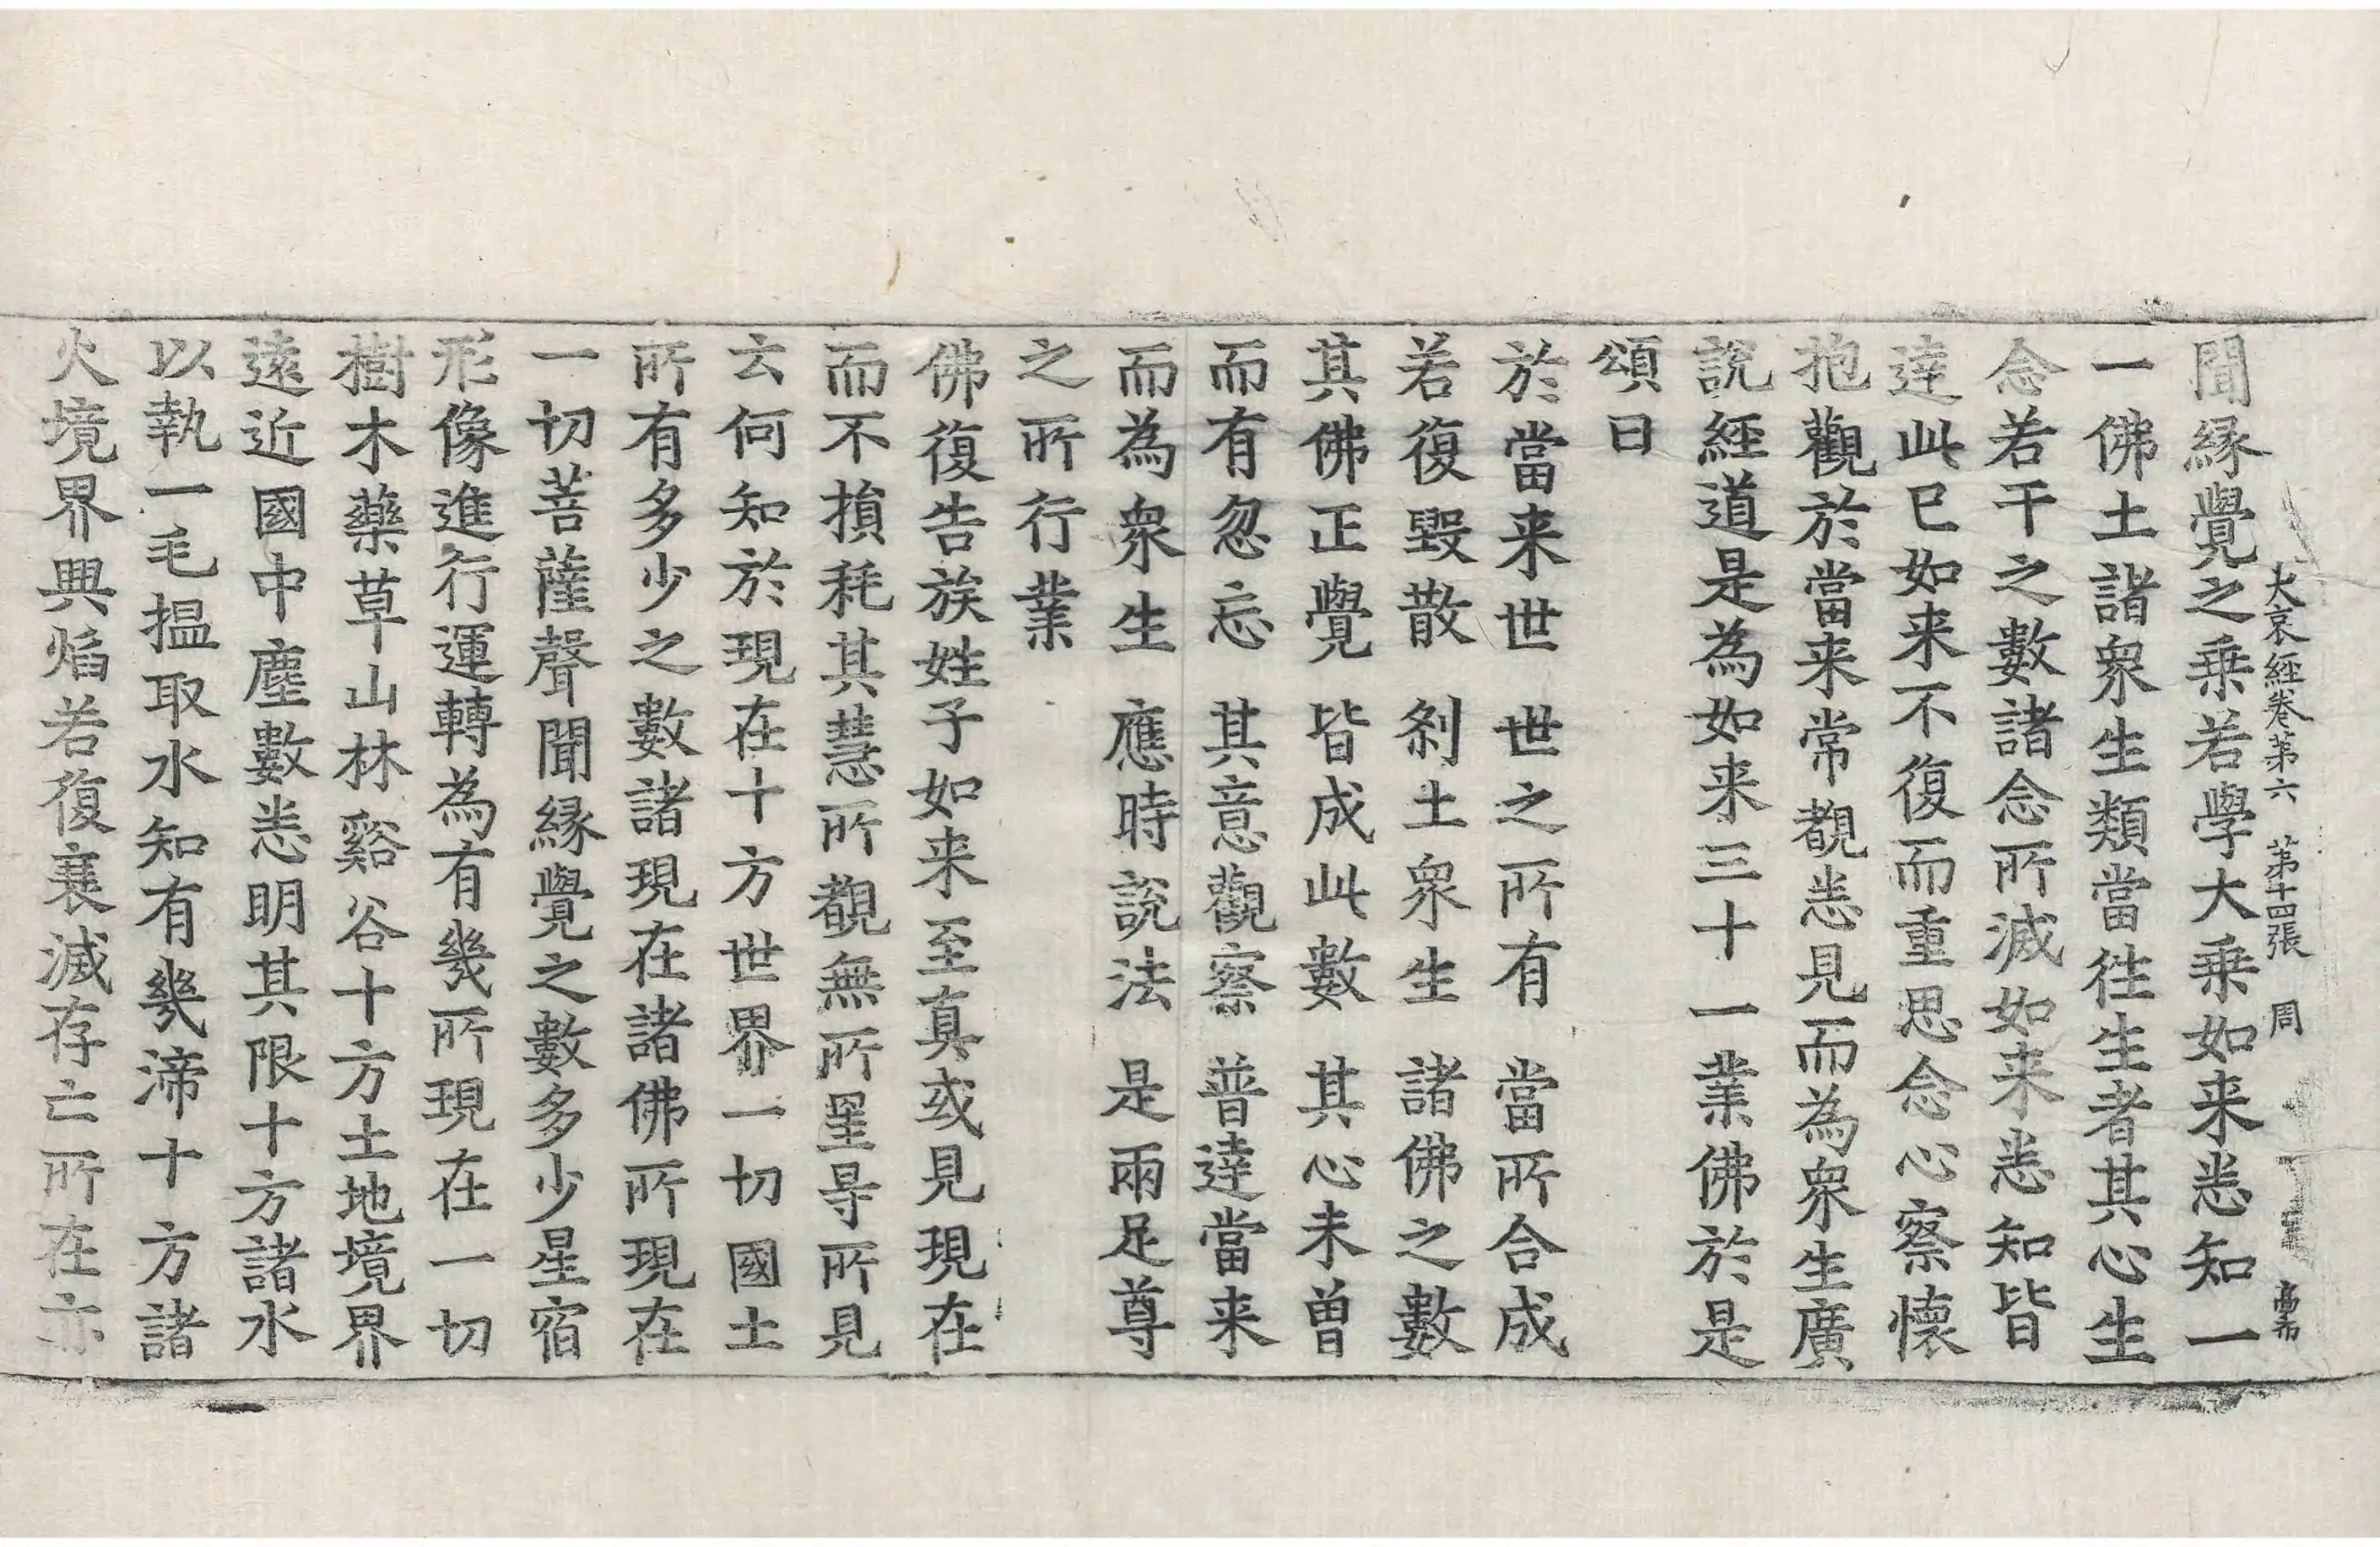 大哀經卷第六 第十四張 周
聞緣覺之乘若學大乘如来悉知一
一佛土諸衆生類當徃生者其心生
念若干之數諸念所滅如来悉知皆
達此已如来不復而重思念心察懷
抱觀於當来常覩悉見而為衆生廣
說經道是為如来三十一業佛於是
頌曰
於當来世 世之所有 當所合成
若復毀散 刹土衆生 諸佛之數
其佛正覺 皆成此數 其心未曾
而有忽忘 其意觀察 普達當来
而為衆生 應時說法 是兩足尊
之所行業
佛復告族姓子如来至真或見現在
而不損耗其慧所覩無所罣㝵所見
云何知於現在十方世界一切國土
所有多少之數諸現在諸佛所現在
一切菩薩聲聞緣覺之數多少星宿
形像進行運轉為有幾所現在一切
樹木藥草山林谿谷十方土地境界
遠近國中塵數悉明其限十方諸水
以執一毛揾取水知有幾渧十方諸
火境界興焰若復衰滅存亡所在亦